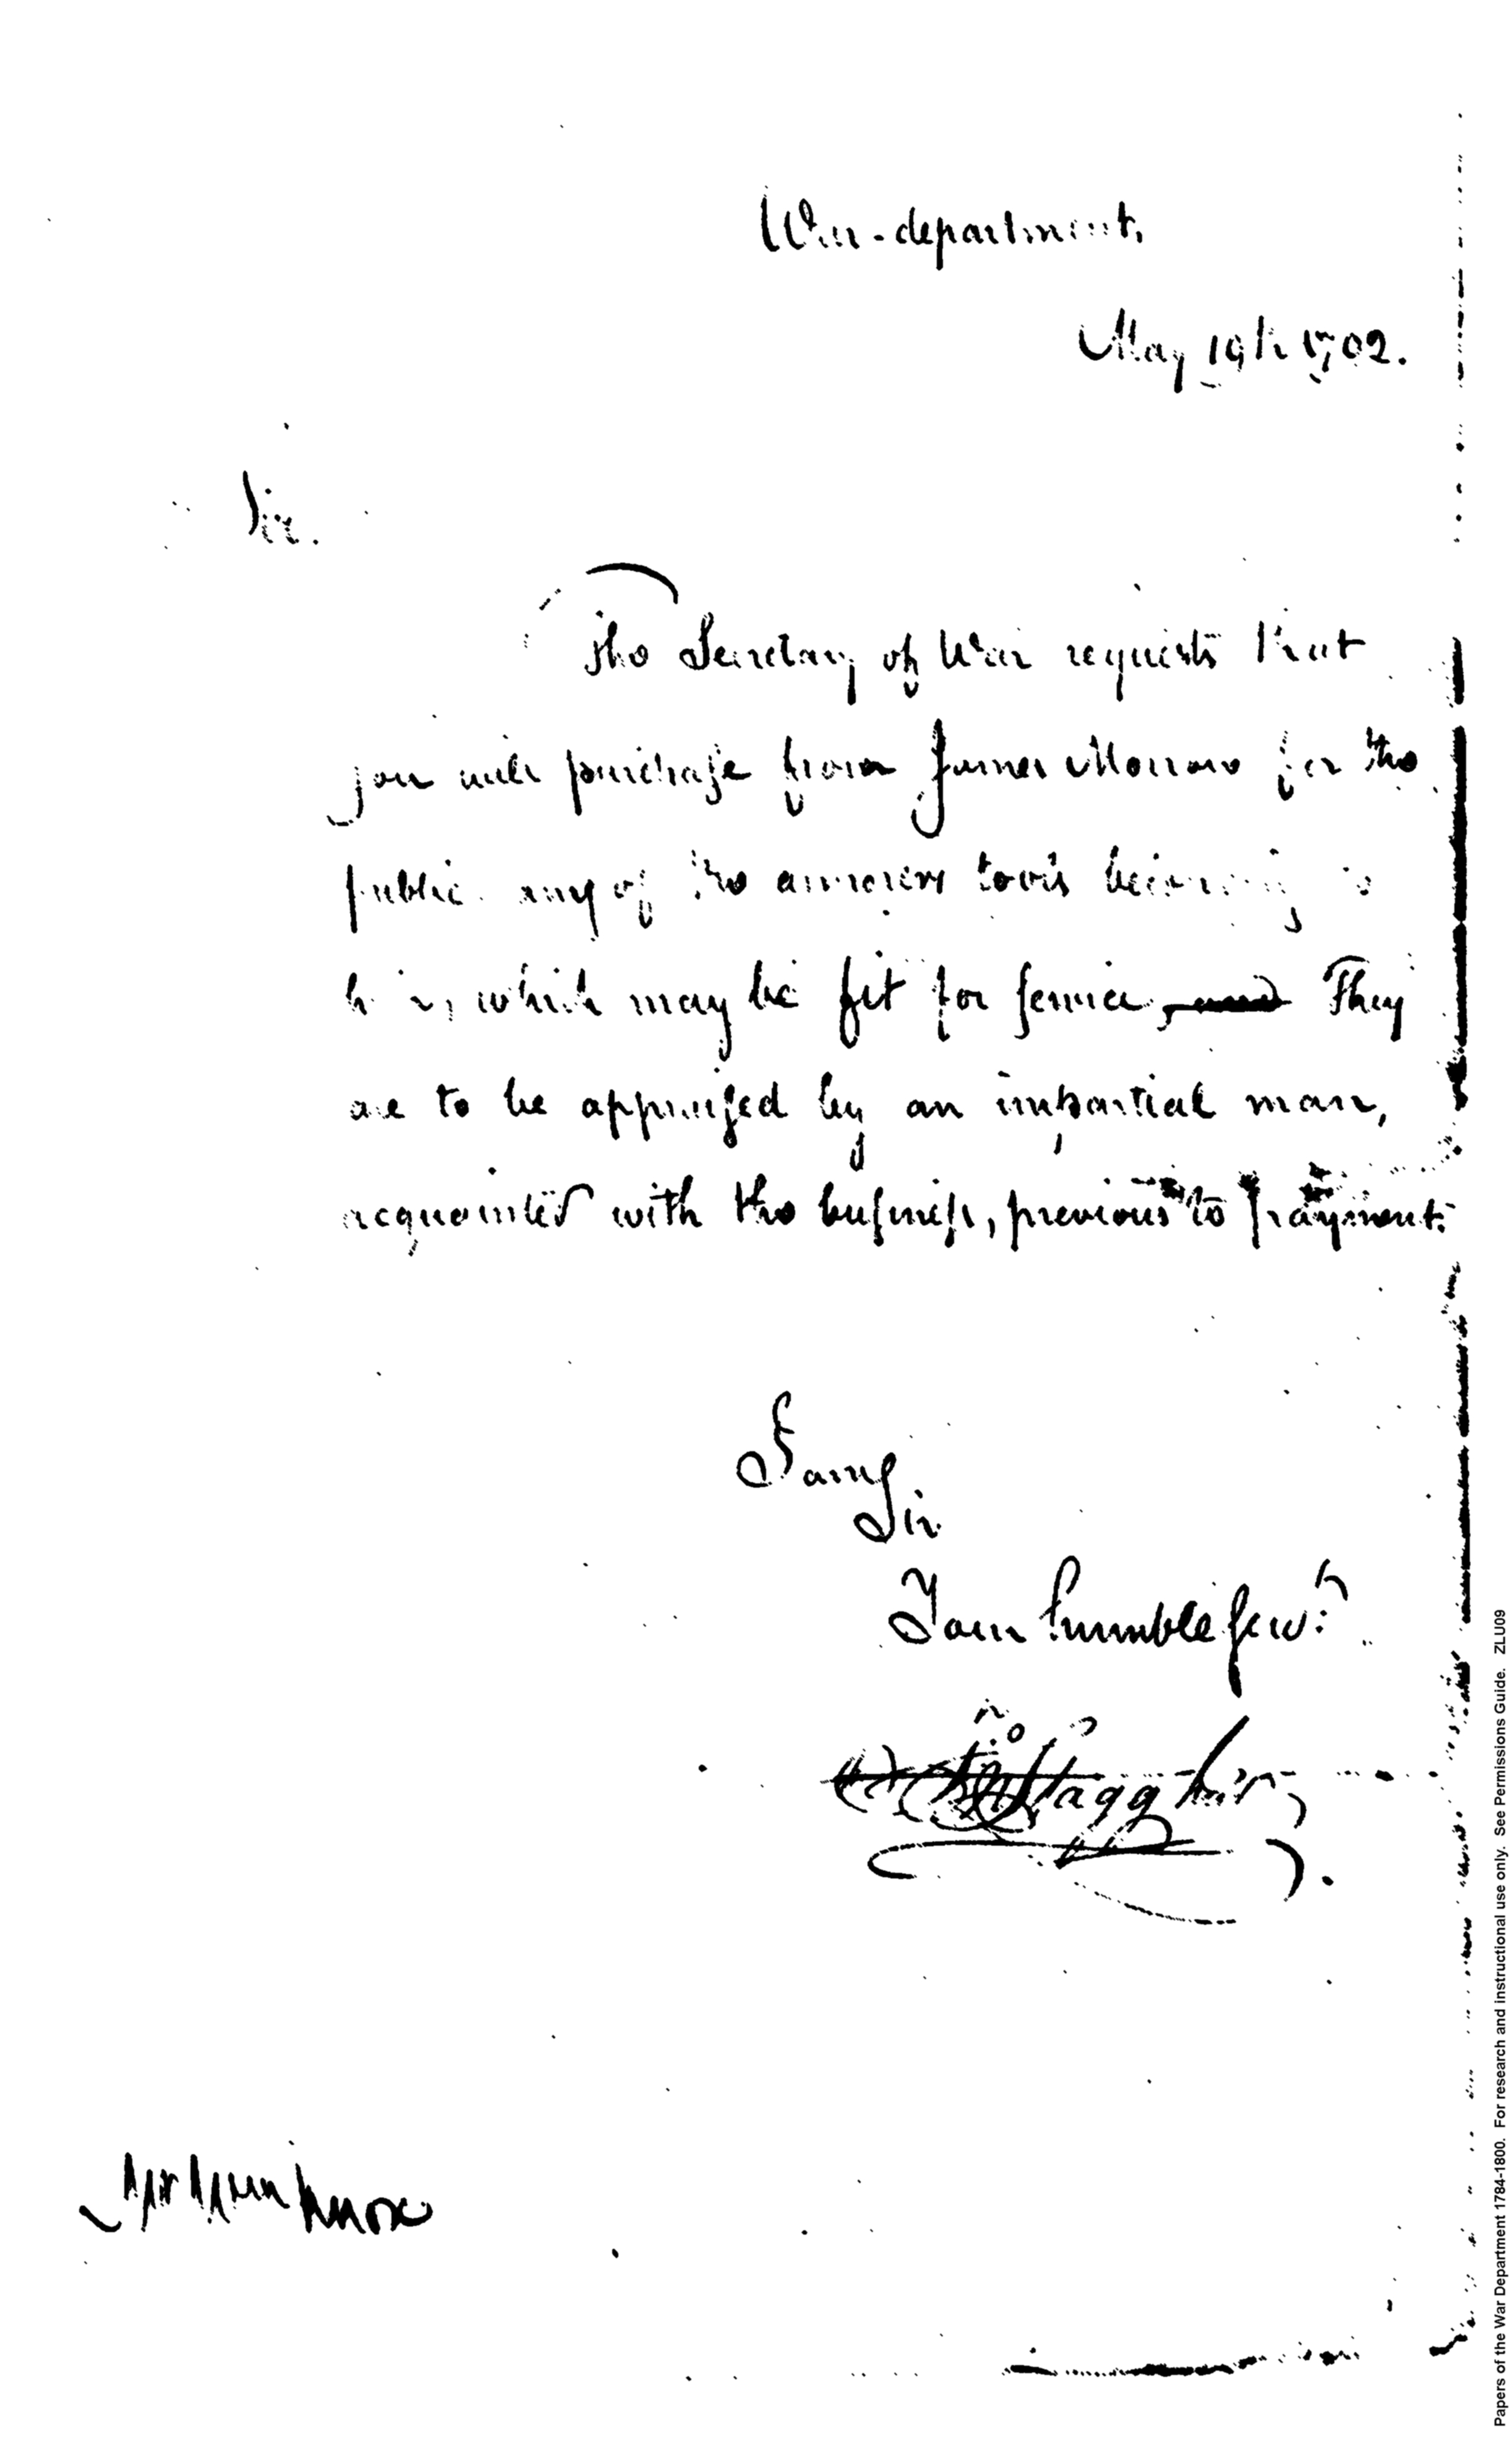 War-department,
May 19th 1792.
Sir.
The Secretary of War requests that
you will purchase from James Morrow for the
public any of the armorers tools belonging to
him, which may be fit for service, and They
are to be appraised by an impartial man,
acquainted with the business, previous to payment.
I am
Sir
Your humble servt
Jno Stagg Junr
Mr Knox
Papers of the War Department 1784-1800. For research and instructional use only. See Permissions Guide. ZLU09